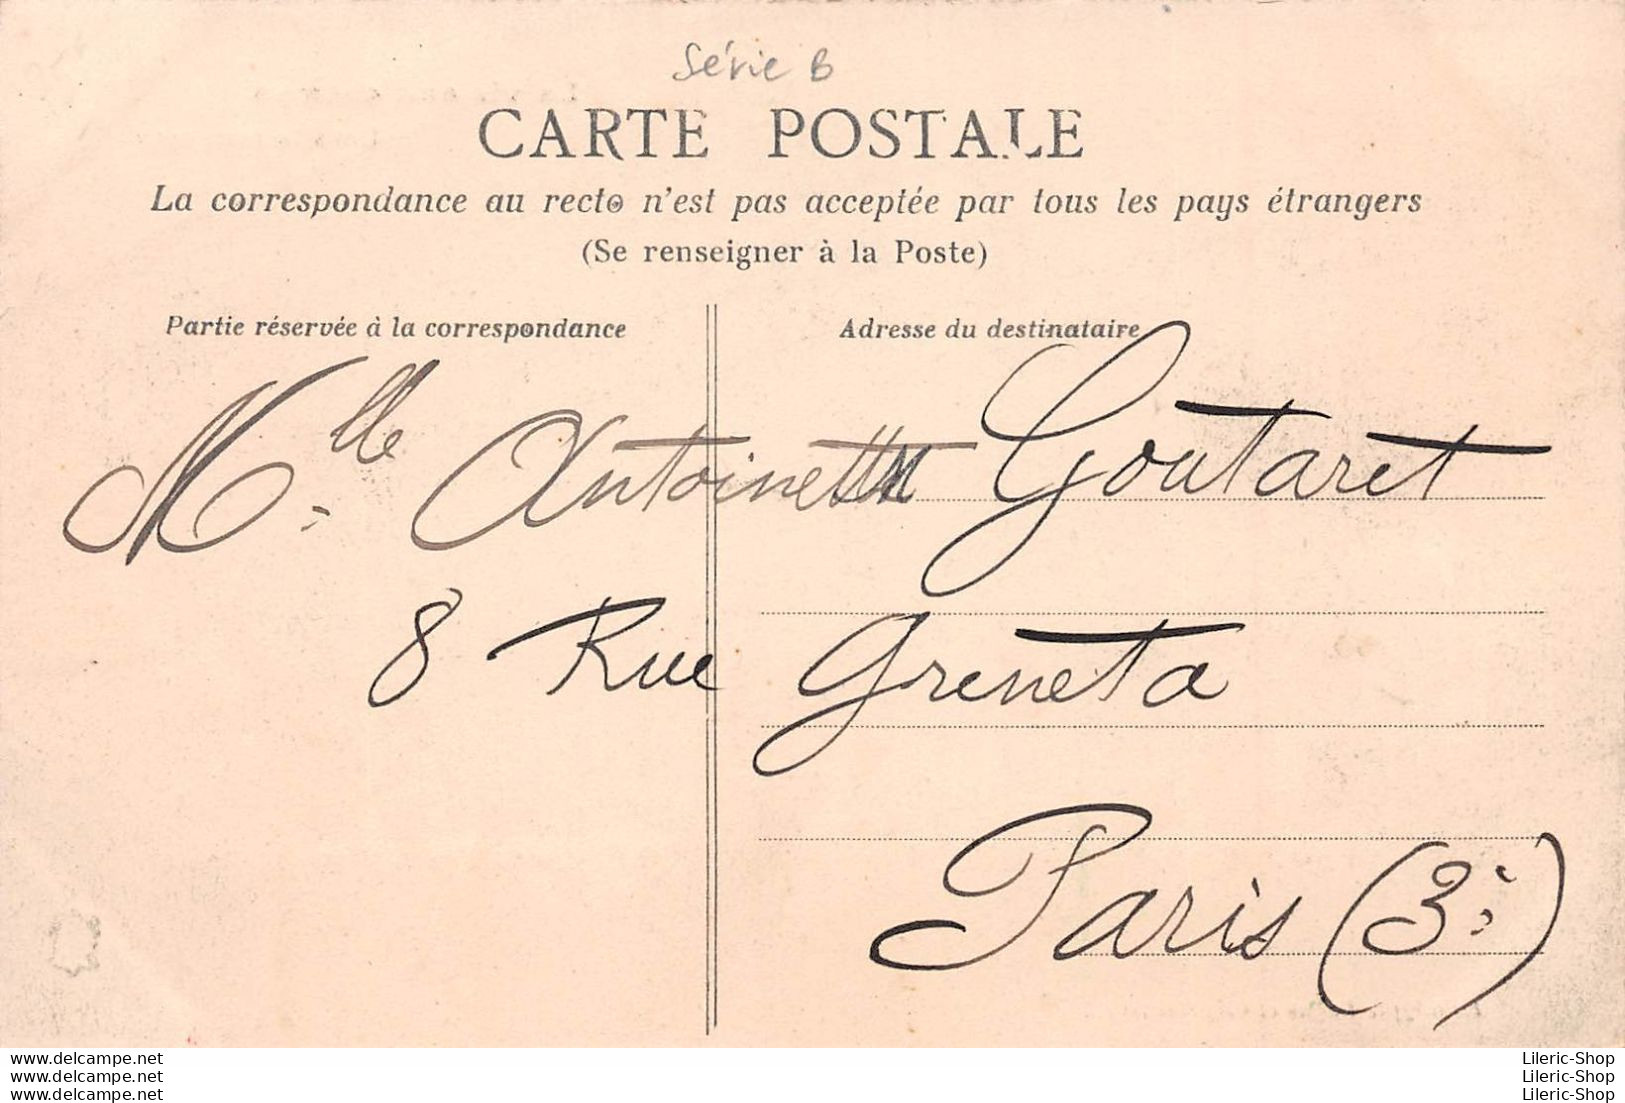 Série B
CARTE POSTALE
La correspondance au recto n'est pas acceptée par tous les pays étrangers
(Se renseigner à la Poste)
Partie réservée à la correspondance
Adresse du destinataire
Mlle Antoinette Goutaret
8 Rue Greneta
Paris (3e)
www.delcampe.net lileric
www.delcampe.net lileric
www.delcampe.net lileric
Lileric-Shop
Lileric-Shop
Lileric-Shop